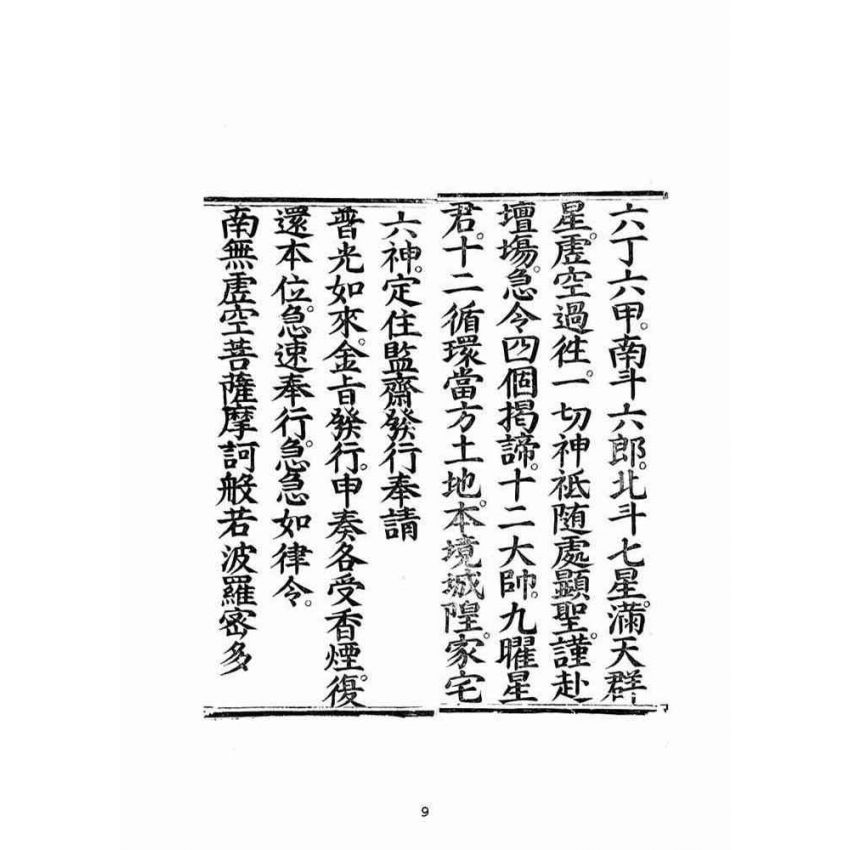 六丁六甲。南斗六郎。北斗七星。滿天群
星。虛空過徃。一切神祇随處顯聖。謹赴
壇塲。急令四個揭諦。十二大帥。九曜星
君。十二循環當方土地。本境城隍。家宅
六神。定住監齋發行奉請
普光如來。金旨發行。申奏各受香煙。復
還本位。急速奉行。急急如律令。
南無虛空菩薩摩訶般若波羅密多
9